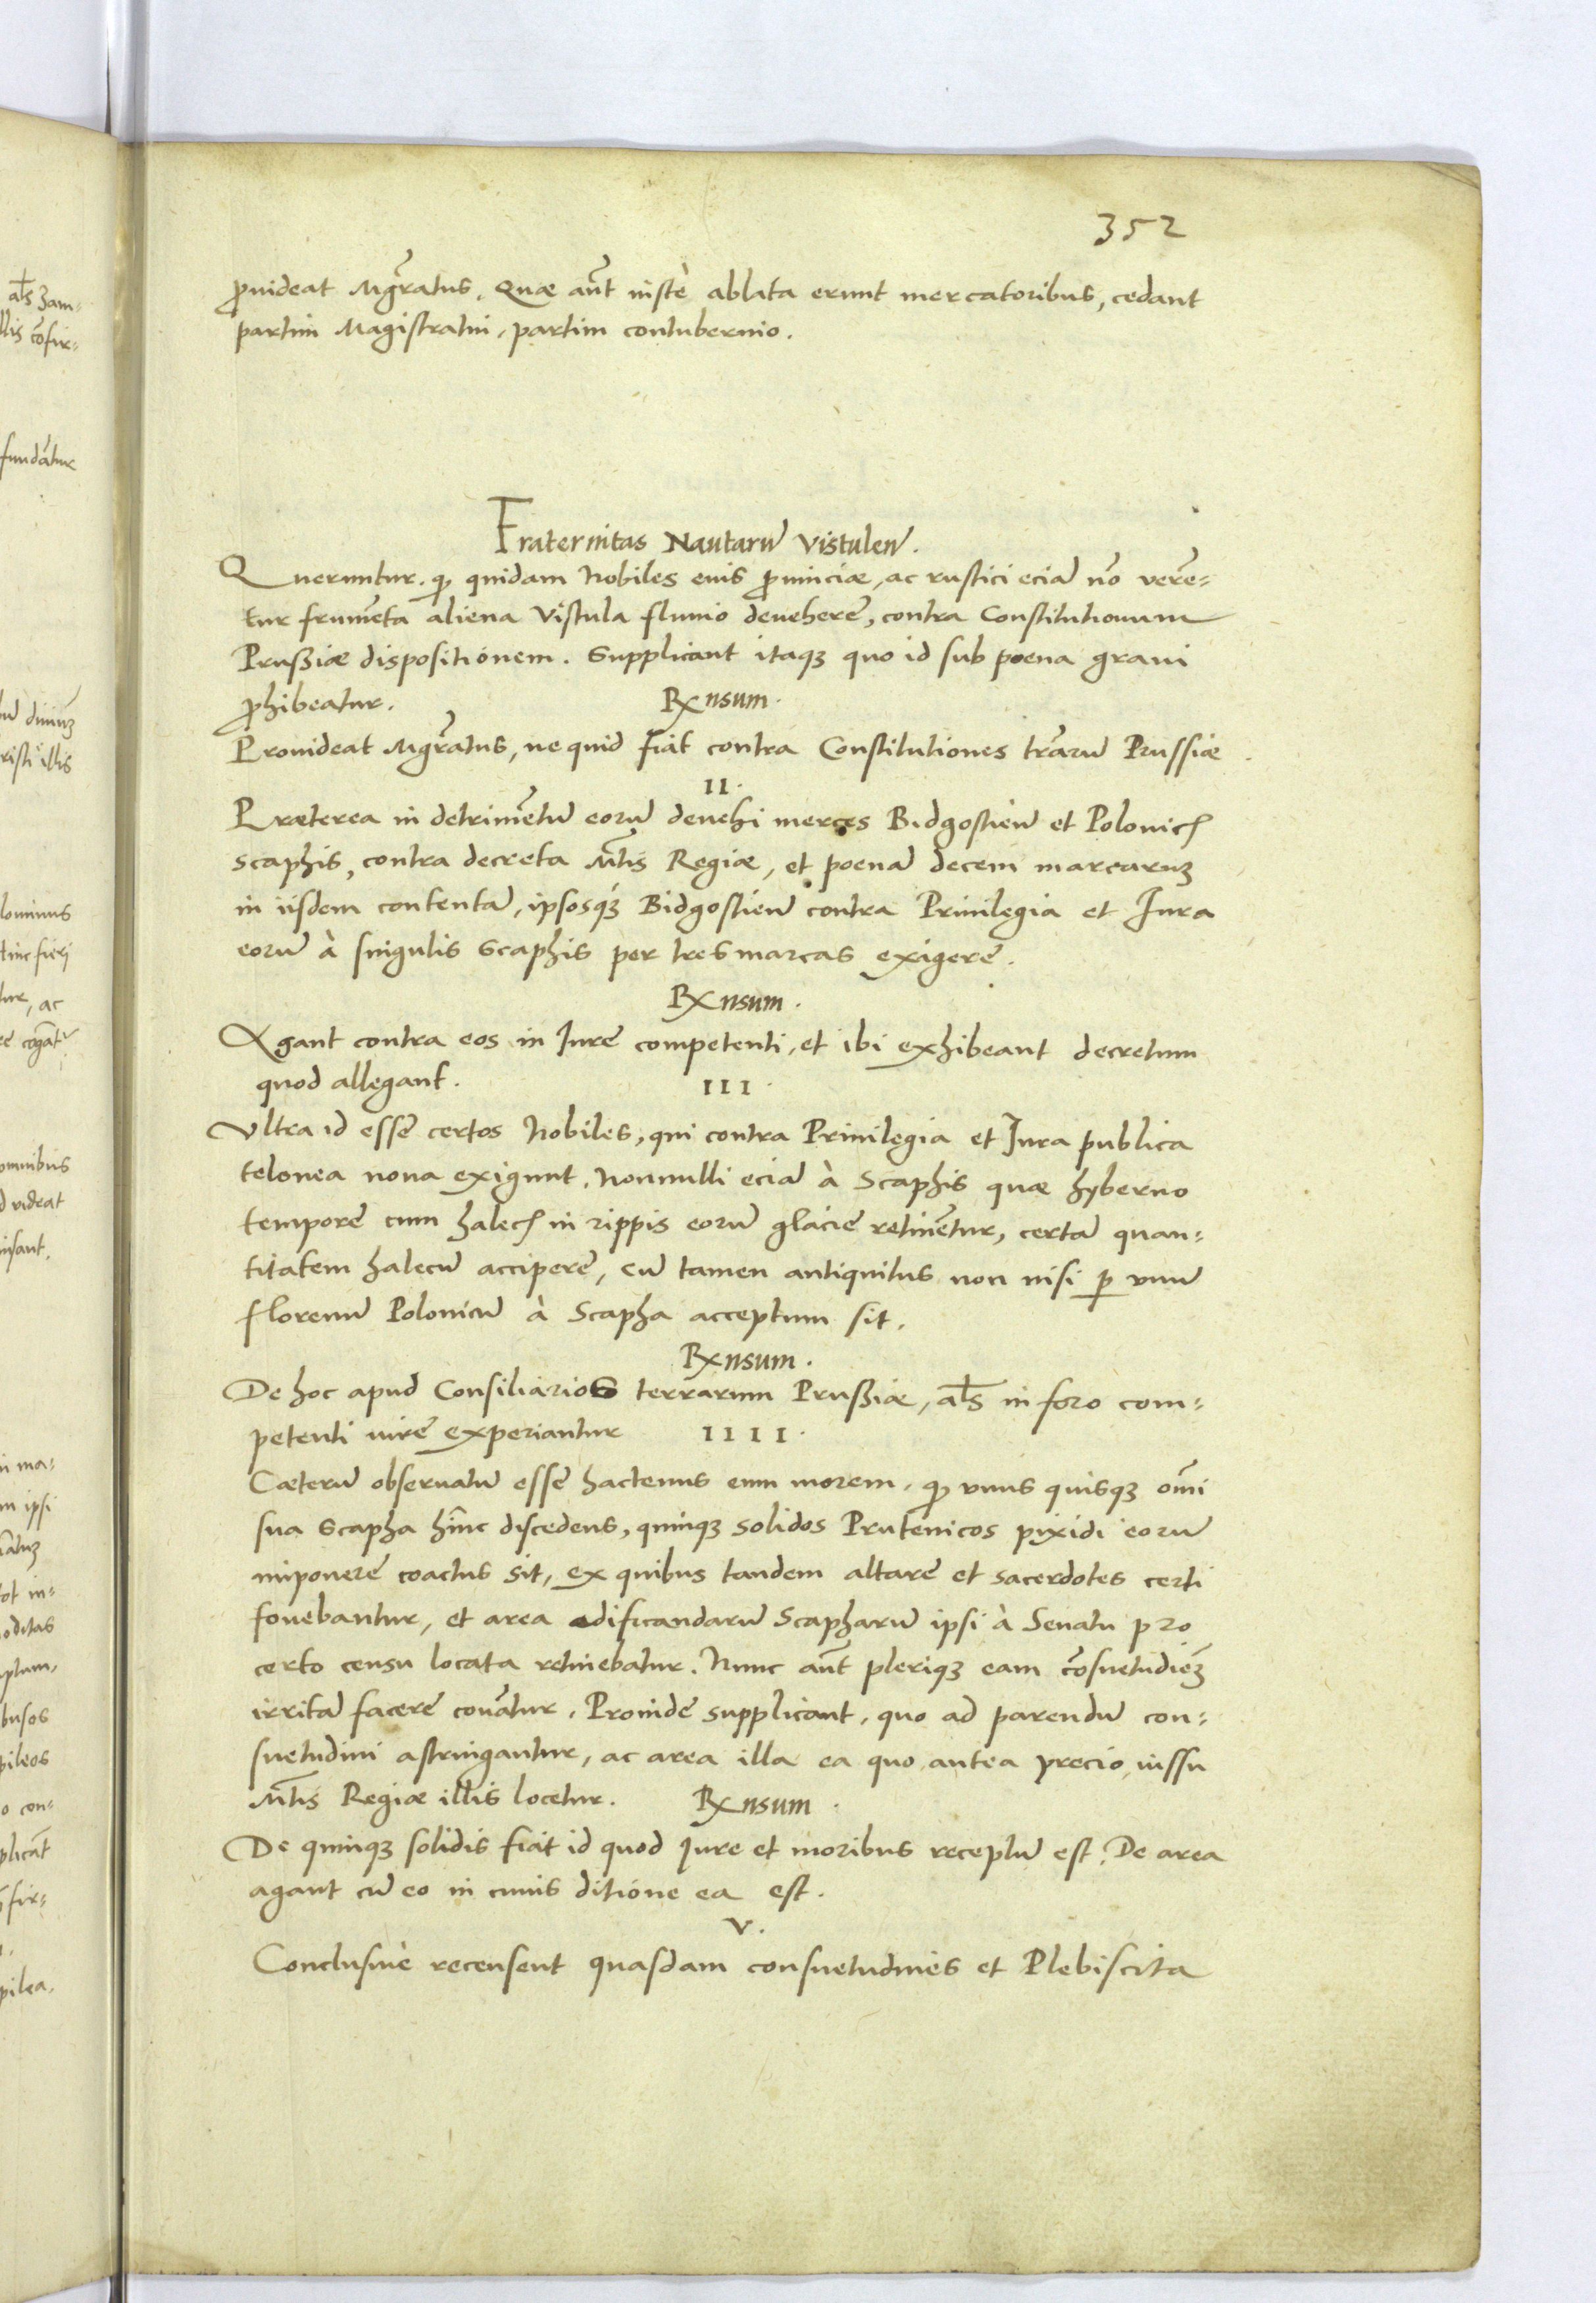 352
ꝓuideat Mg̃ratus. Quæ aũt iustè ablata erunt mercatoribus, cedant
partim Magistratui, partim contubernio.
Fraternitas Nautarũ Vistuleñ.
Queruntur. ꝙ quidam Nobiles euis ꝓuinciæ, ac rustici eciã nõ verẽ-
tur frumẽta aliena Vistula fluuio deuehere, contra Constitutionum
Prußiæ dispositionem. Supplicant itaqꝫ quo id sub poena graui
ꝓhibeatur. Rx̃nsum.
Prouideat Mg̃ratus, ne quid fiat contra Constitutiones tr̃arũ Prussiæ.
II.
Præterea in detrimẽtũ eorũ deuehi merces Bidgostieñ et Polonicꝭ
scaphis, contra decreta Mt̃is Regiæ, et poenã decem marcaruꝫ
in iisdem contentã, ipsosqꝫ Bidgostieñ contra Priuilegia et Iura
eorũ à singulis Scaphis per tres marcas exigere.
Rx̃nsum.
Agant contra eos in Iure competenti, et ibi exhibeant decretum
quod allegant. III.
Vltra id esse certos Nobiles, qui contra Priuilegia et Iura publica
telonea noua exigunt. Nonnulli eciã à Scaphis quæ hyberno
tempore cum halecꝭ in rippis eorũ glacie retinẽtur, certã quan-
titatem halecũ accipere, cũ tamen antiquitus non nisi ꝑ vnũ
florenũ Polonicũ à Scapha acceptum sit.
Rx̃nsum.
De hoc apud Consiliarios terrarum Prußiæ, al̃s in foro com-
petenti iure experiantur IIII.
Cæterũ obseruatũ esse hactenus eum morem, ꝙ vnus quisqꝫ om̃i
sua scapha hinc discedens, quinqꝫ solidos Prutenicos pixidi eorũ
imponere coactus sit, ex quibus tandem altare et sacerdotes certi
fouebantur, et area ædificandarũ Scapharũ ipsi à Senatu pro
certo censu locata retinebatur. Nunc aũt pleriqꝫ eam cõsuetudiẽꝫ
irritã facere conãtur. Proinde supplicant, quo ad parendũ con-
suetudini astringantur, ac area illa ea quo antea precio, iussu
Mt̃is Regiæ illis locetur. Rx̃nsum.
De quinqꝫ solidis fiat id quod Iure et moribus receptũ est. De area
agant cũ eo in cuius ditione ea est.
V.
Conclusiuè recensent quasdam consuetudines et Plebiscita